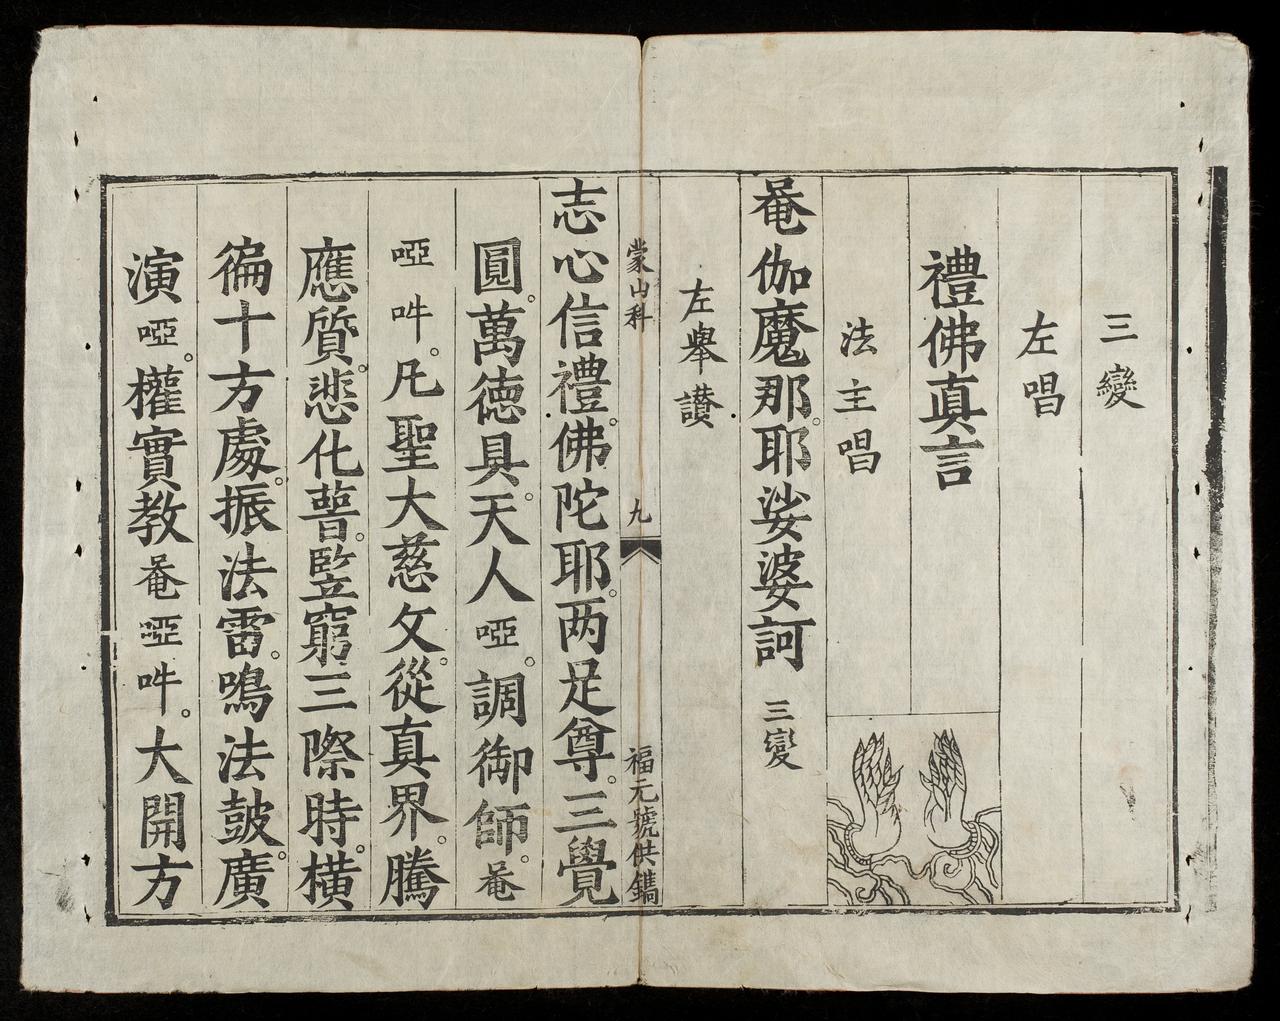 三變
左唱
禮佛真言
法主唱
菴伽魔那。耶娑婆訶 三變
左舉讃
蒙山科 九 福元號供鐫
志心信禮。佛陀耶。两足尊。三覺
圓。萬德具。天人啞。調御師。菴
啞吽。凡聖大慈父。從真界。騰
應質。悲化普。竪窮三際時。橫
徧十方處。振法雷。鳴法皷。廣
演啞。權實教菴啞吽。大開方